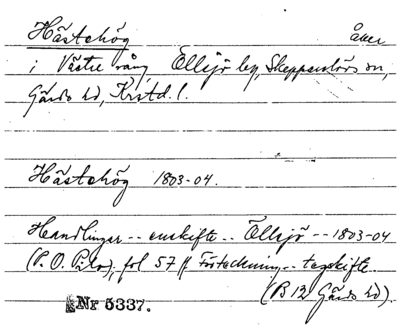 Hästahög åker
i Västra vång, Ellsjö by, Skepparslövs sn,
Gärds hd, Krstd. l.
Hästahög 1803-04.
Handlingar -- enskifte -- Ellsjö -- 1803-04
(P. O. Pihl), fol 57 ff Förteckning -- tegskifte
(B 12 Gärds hd).
Nr 5337.